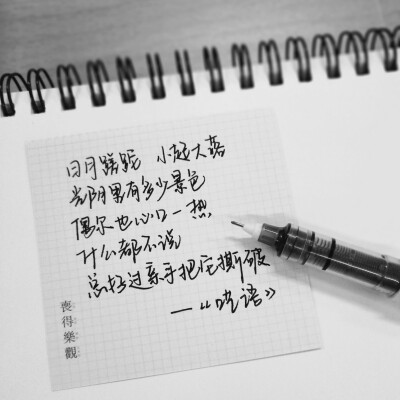 日月蹉跎 小起大落
光阴里有多少景色
偶尔也心口一热
什么都不说
总好过亲手把它撕破
—《呓语》
喪得樂觀